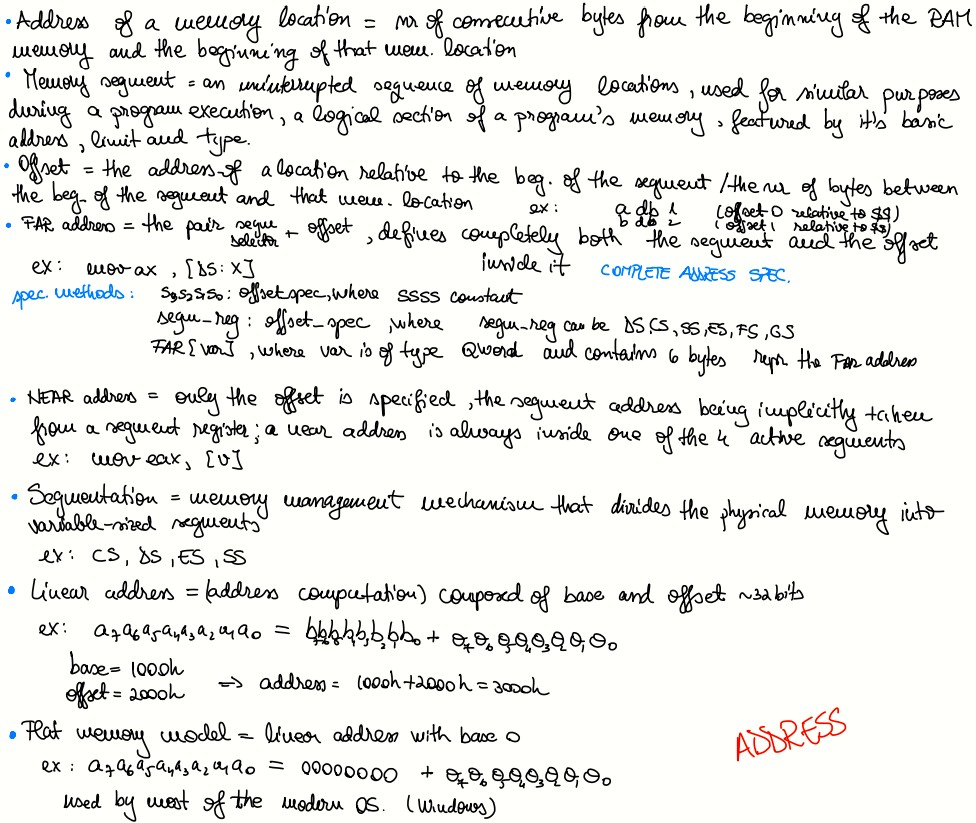 • Address of a memory location = nr of consecutive bytes from the beginning of the RAM
memory and the beginning of that mem. location
• Memory segment = an uninterrupted sequence of memory locations, used for similar purposes
during a program execution, a logical section of a program's memory, featured by it's basic
address, limit and type.
• Offset = the address of a location relative to the beg. of the segment / the nr of bytes between
the beg. of the segment and that mem. location
ex: a db 1 (offset 0 relative to $$)
b db 2 (offset 1 relative to $$)
• FAR address = the pair segm selector + offset, defines completely both the segment and the offset
inside it
COMPLETE ADDRESS SPEC.
ex: mov ax, [DS: X]
spec. methods: S3S2S1S0: offset spec, where SSSS constant
segm_reg: offset_spec, where segm-reg can be DS, CS, SS, ES, FS, GS
FAR [var], where var is of type Qword and contains 6 bytes repr. the FAR address
• NEAR address = only the offset is specified, the segment address being implicitly taken
from a segment register; a near address is always inside one of the 4 active segments
ex: mov eax, [v]
• Segmentation = memory management mechanism that divides the physical memory into
variable-sized segments
ex: CS, DS, ES, SS
• Linear address = (address computation) composed of base and offset ~32 bits
ex: a7a6a5a4a3a2a1a0 = b7b6b5b4b3b2b1b0 + o7o6o5o4o3o2o1o0
base = 1000h
offset = 2000h => address = 1000h + 2000h = 3000h
• Flat memory model = linear address with base 0
ex: a7a6a5a4a3a2a1a0 = 00000000 + o7o6o5o4o3o2o1o0
used by most of the modern OS. (Windows)
ADDRESS